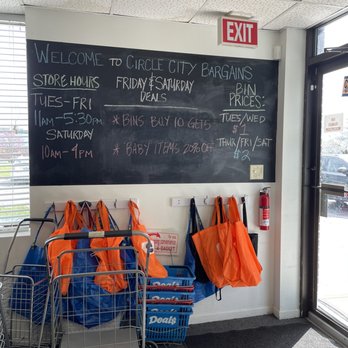 EXIT
WELCOME TO CIRCLE CITY BARGAINS
STORE HOURS
TUES-FRI
11AM-5:30PM
SATURDAY
10AM-4PM
FRIDAY & SATURDAY
DEALS
* BINS BUY 10 GET 5
* BABY ITEMS 20% OFF
BIN
PRICES:
TUES/WED
$1
THUR/FRI/SAT
$2
Deal$
Deal$